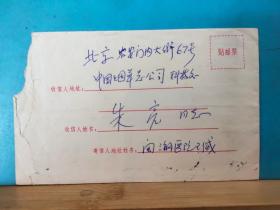 贴邮票
北京 崇文门内大街67号
收信人地址：中国烟草总公司 科教处
收信人姓名：朱亮 同志
寄信人地址姓名：